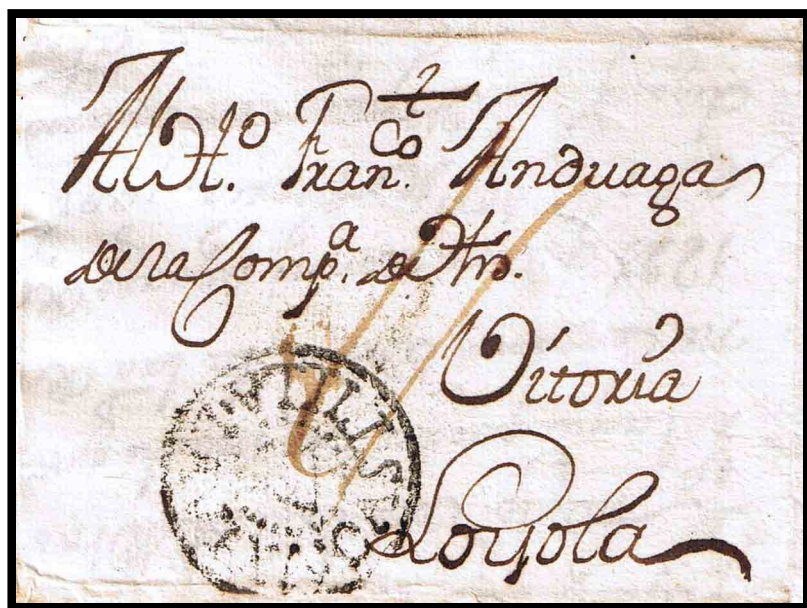 Al H.º Fran.co Anduaga
de la Comp.a de Jhs.
Vitoria
Loyola
CASTILLA